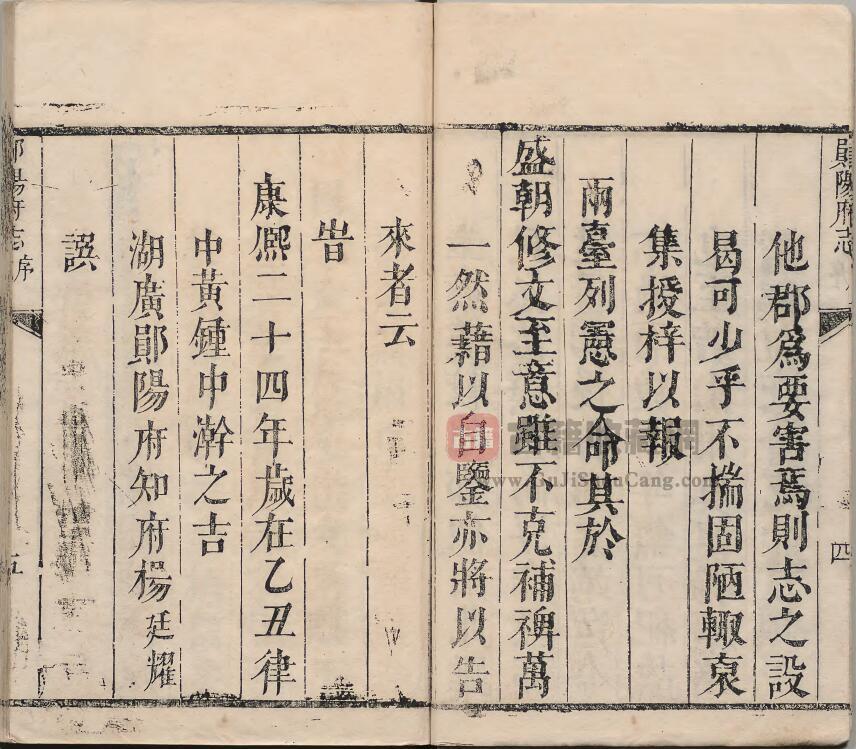 鄖陽府志
四
他郡爲要害焉則志之設
曷可少乎不揣固陋輙裒
集授梓以報
兩臺列憲之命其於
盛朝修文至意雖不克補裨萬
一然藉以自鑒亦將以告
來者云
旹
康熙二十四年歲在乙丑律
中黃鍾中澣之吉
湖廣鄖陽府知府楊廷耀
譔
鄖陽府志
序
五
www.GuJiShuCang.com